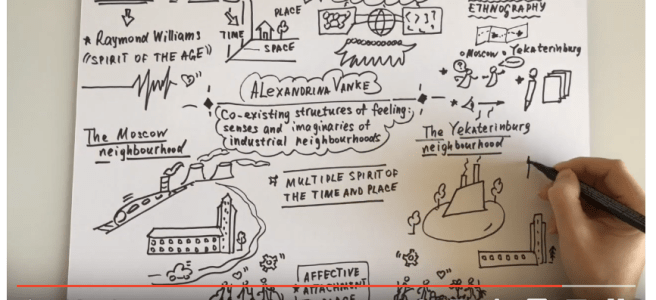 ETHNOGRAPHY
PLACE
TIME
SPACE
* Raymond Williams
"SPIRIT OF THE AGE"
Moscow
Yekaterinburg
ALEXANDRINA VANKE
Co-existing structures of feeling:
senses and imaginaries of
industrial neighbourhoods
The Moscow
neighbourhood
The Yekaterinburg
neighbourhood
MULTIPLE SPIRIT OF
THE TIME AND PLACE
AFFECTIVE
ATTACHMENT